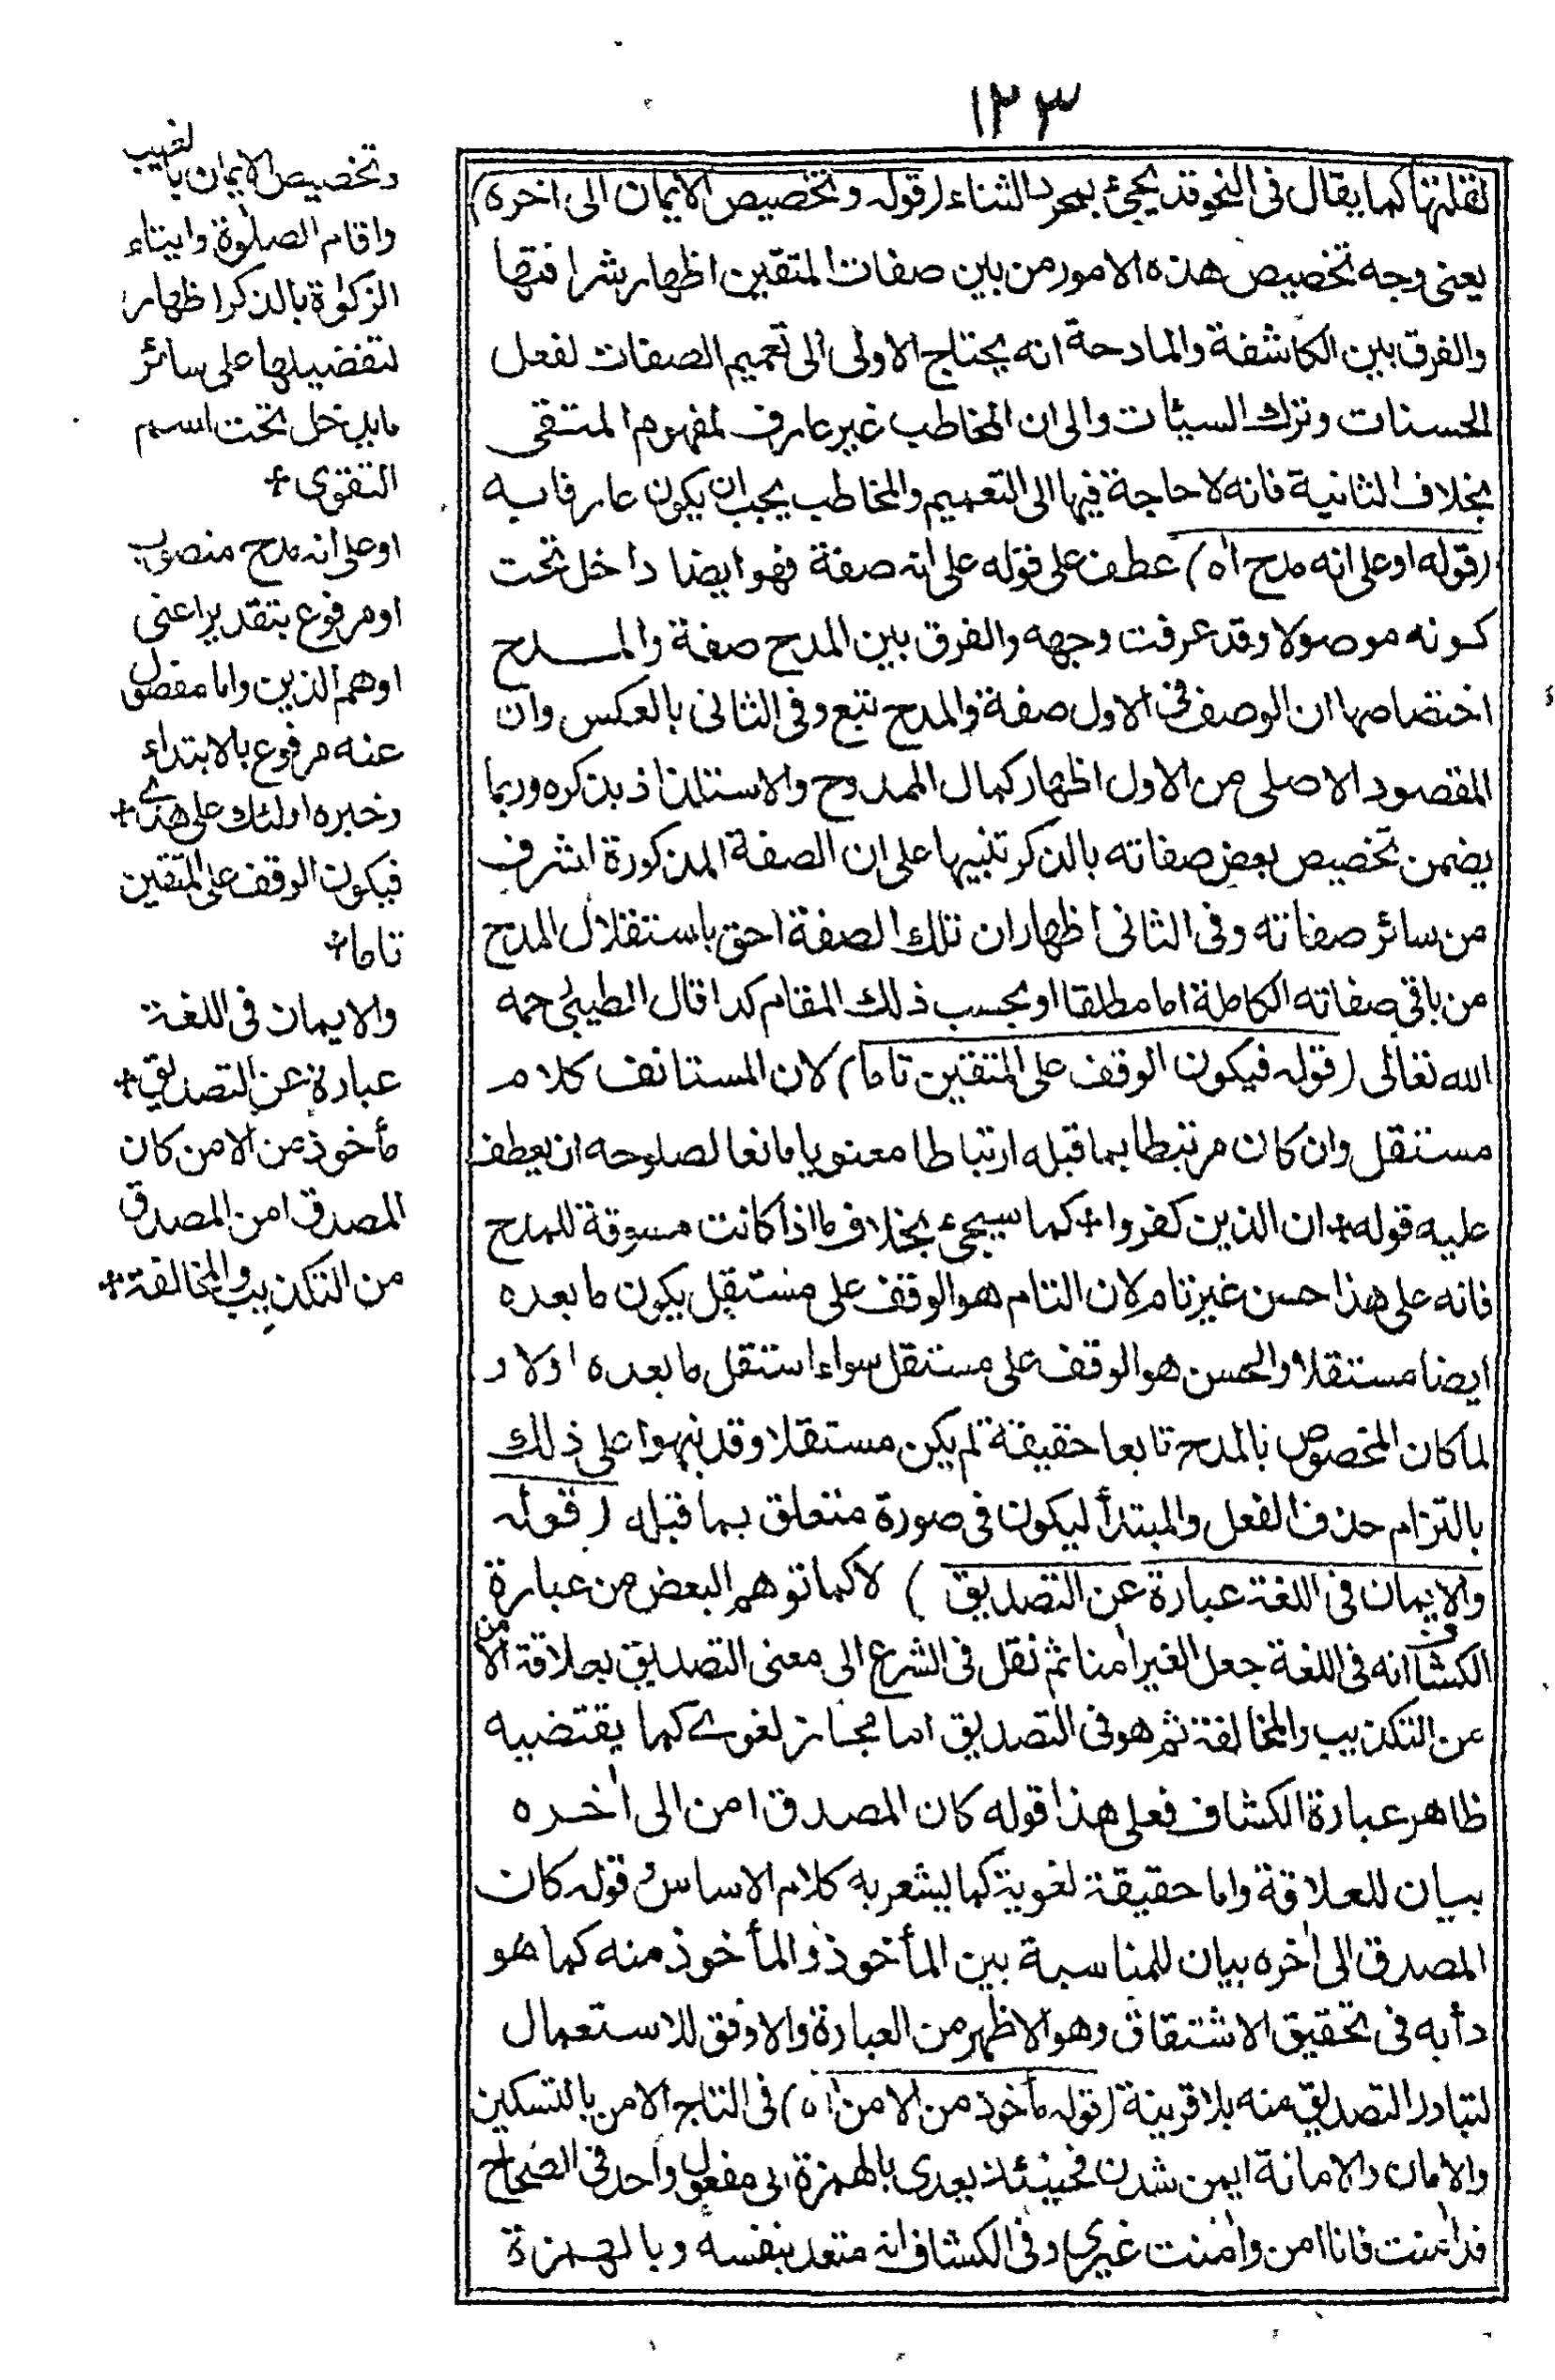 ١٢٣
لقلتها كما يقال فى النحو قد يجئ لمجرد الثناء (قوله وتخصيص الايمان الى اخره)
يعنى وجه تخصيص هذه الامور من بين صفات المتقين اظهار شرافتها
والفرق بين الكاشفة والمادحة انه يحتاج الاولى الى تعميم الصفات لفعل
الحسنات وترك السيئات والى ان المخاطب غير عارف لمفهوم المتقى
بخلاف الثانية فانه لا حاجة فيها الى التعميم والمخاطب يجب ان يكون عارفا به
(قوله او على انه مدح اه) عطف على قوله على انه صفة فهو ايضا داخل تحت
كونه موصولا وقد عرفت وجهه والفرق بين المدح صفة والمدح
اختصاصا ان الوصف فى الاول صفة والمدح تبع وفى الثانى بالعكس وان
المقصود الاصلى من الاول اظهار كمال الممدوح والاستلذاذ بذكره وربما
يضمن تخصيص بعض صفاته بالذكر تنبيها على ان الصفة المذكورة اشرف
من سائر صفاته وفى الثانى اظهار ان تلك الصفة احق باستقلال المدح
من باقى صفاته الكاملة اما مطلقا او بحسب ذلك المقام كذا قال الطيبى رحمه
الله تعالى (قوله فيكون الوقف على المتقين تاما) لان المستانف كلام
مستقل وان كان مرتبطا بما قبله ارتباطا معنويا مانعا لصلوحه ان يعطف
عليه قوله + ان الذين كفروا + كما سيجئ بخلاف ما اذا كانت مسوقة للمدح
فانه على هذا حسن غير تام لان التام هو الوقف على مستقل يكون ما بعده
ايضا مستقلا والحسن هو الوقف على مستقل سواء استقل ما بعده اولا و
لما كان المخصوص بالمدح تابعا حقيقة لم يكن مستقلا وقد نبهوا على ذلك
بالتزام حذف الفعل والمبتدأ ليكون فى صورة متعلق بما قبله (قوله
والايمان فى اللغة عبارة عن التصديق) لا كما توهم البعض من عبارة
الكشاف انه فى اللغة جعل الغير امنا ثم نقل فى الشرع الى معنى التصديق بعلاقة الامن
عن التكذيب والمخالفة ثم هو فى التصديق اما مجاز لغوى كما يقتضيه
ظاهر عبارة الكشاف فعلى هذا قوله كان المصدق امن الى اخره
بيان للعلاقة واما حقيقة لغوية كما يشعر به كلام الاساس وقوله كان
المصدق الى اخره بيان للمناسبة بين المأخوذ والمأخوذ منه كما هو
دأبه فى تحقيق الاشتقاق وهو الاظهر من العبارة والاوفق للاستعمال
لتبادر التصديق منه بلا قرينة (قوله مأخوذ من الامن اه) فى التاج الامن بالتسكين
والامان والامانة ايمن شدن فحينئذ يعدى بالهمزة الى مفعول واحد فى الصحاح
قد امنت فانا امن وامنت غيرى وفى الكشاف انه متعد بنفسه وبالهمزة
وتخصيص الايمان بالغيب
واقام الصلوة وايتاء
الزكوة بالذكر اظهار
لتفضيلها على سائر
ما يدخل تحت اسم
التقوى +
او على انه مدح منصوب
او مرفوع بتقدير اعنى
او هم الذين واما مفصول
عنه مرفوع بالابتداء
وخبره اولئك على هدى +
فيكون الوقف على المتقين
تاما +
والايمان فى اللغة
عبارة عن التصديق +
مأخوذ من الامن كان
المصدق امن المصدق
من التكذيب والمخالفة +